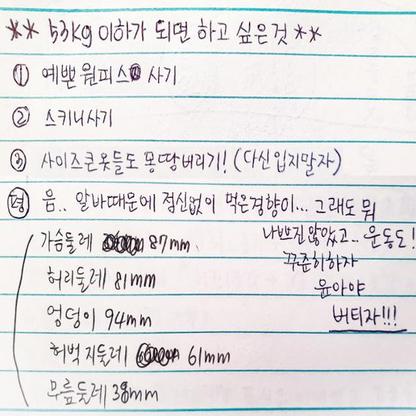 ** 53kg 이하가 되면 하고 싶은것 **
① 예쁜 원피스 사기
② 스키니사기
③ 사이즈큰옷들도 몽땅버리기! (다신입지말자)
평 음.. 알바때문에 정신없이 먹은경향이... 그래도 뭐
나쁘진않았고.. 운동도!
꾸준히하자
윤아야
버티자!!!
가슴둘레 87mm
허리둘레 81mm
엉덩이 94mm
허벅지둘레 61mm
무릎둘레 38mm